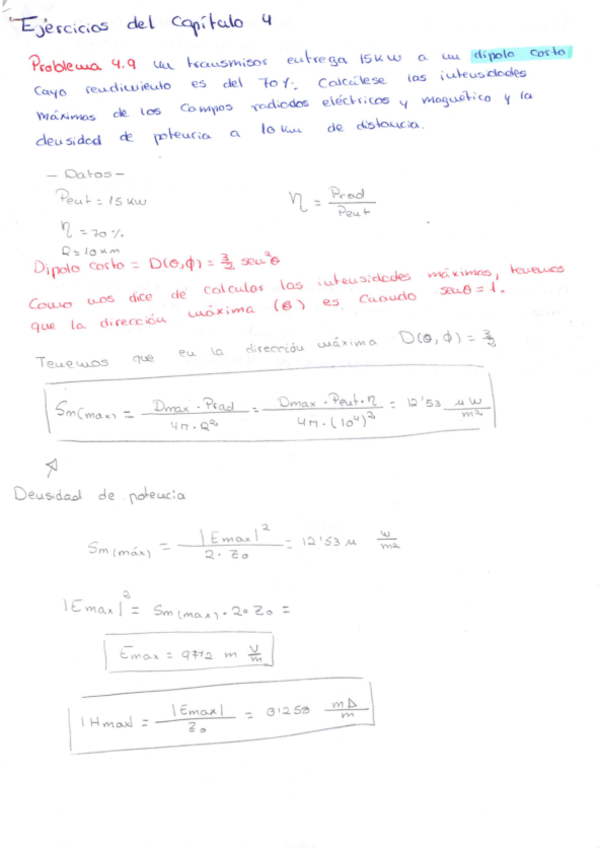 Ejercicios del Capítulo 4
Problema 4.9 Un transmisor entrega 15kW a un dipolo corto
cuyo rendimiento es del 70%. Calcúlese las intensidades
máximas de los campos radiados eléctricos y magnético y la
densidad de potencia a 10 km de distancia.
- Datos -
Pent = 15 kW
η = Prad / Pent
η = 70 %
R = 10 km
Dipolo corto = D(θ,φ) = 3/2 sen²θ
Como nos dice de calcular las intensidades máximas, tenemos
que la dirección máxima (θ) es cuando senθ = 1.
Tenemos que en la dirección máxima D(θ,φ) = 3/2
Sm(max) = Dmax · Prad / 4π · R² = Dmax · Pent · η / 4π · (10⁴)² = 12'53 μW/m²
Densidad de potencia
Sm(máx) = |Emax|² / 2 · Z₀ = 12'53 μ W/m²
|Emax|² = Sm(max) · 2 · Z₀ =
Emax = 97'12 m V/m
|Hmax| = |Emax| / Z₀ = 0'258 mA/m